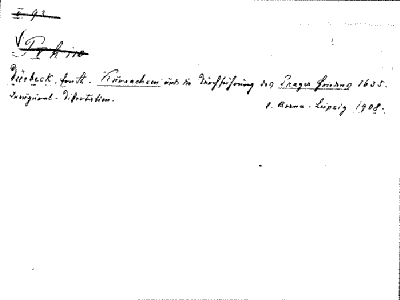 II 93
Dürbeck, Ernst. Kursachsen und die Durchführung des Prager Friedens 1635.
Inaugural-Dissertation. Borna-Leipzig 1908.